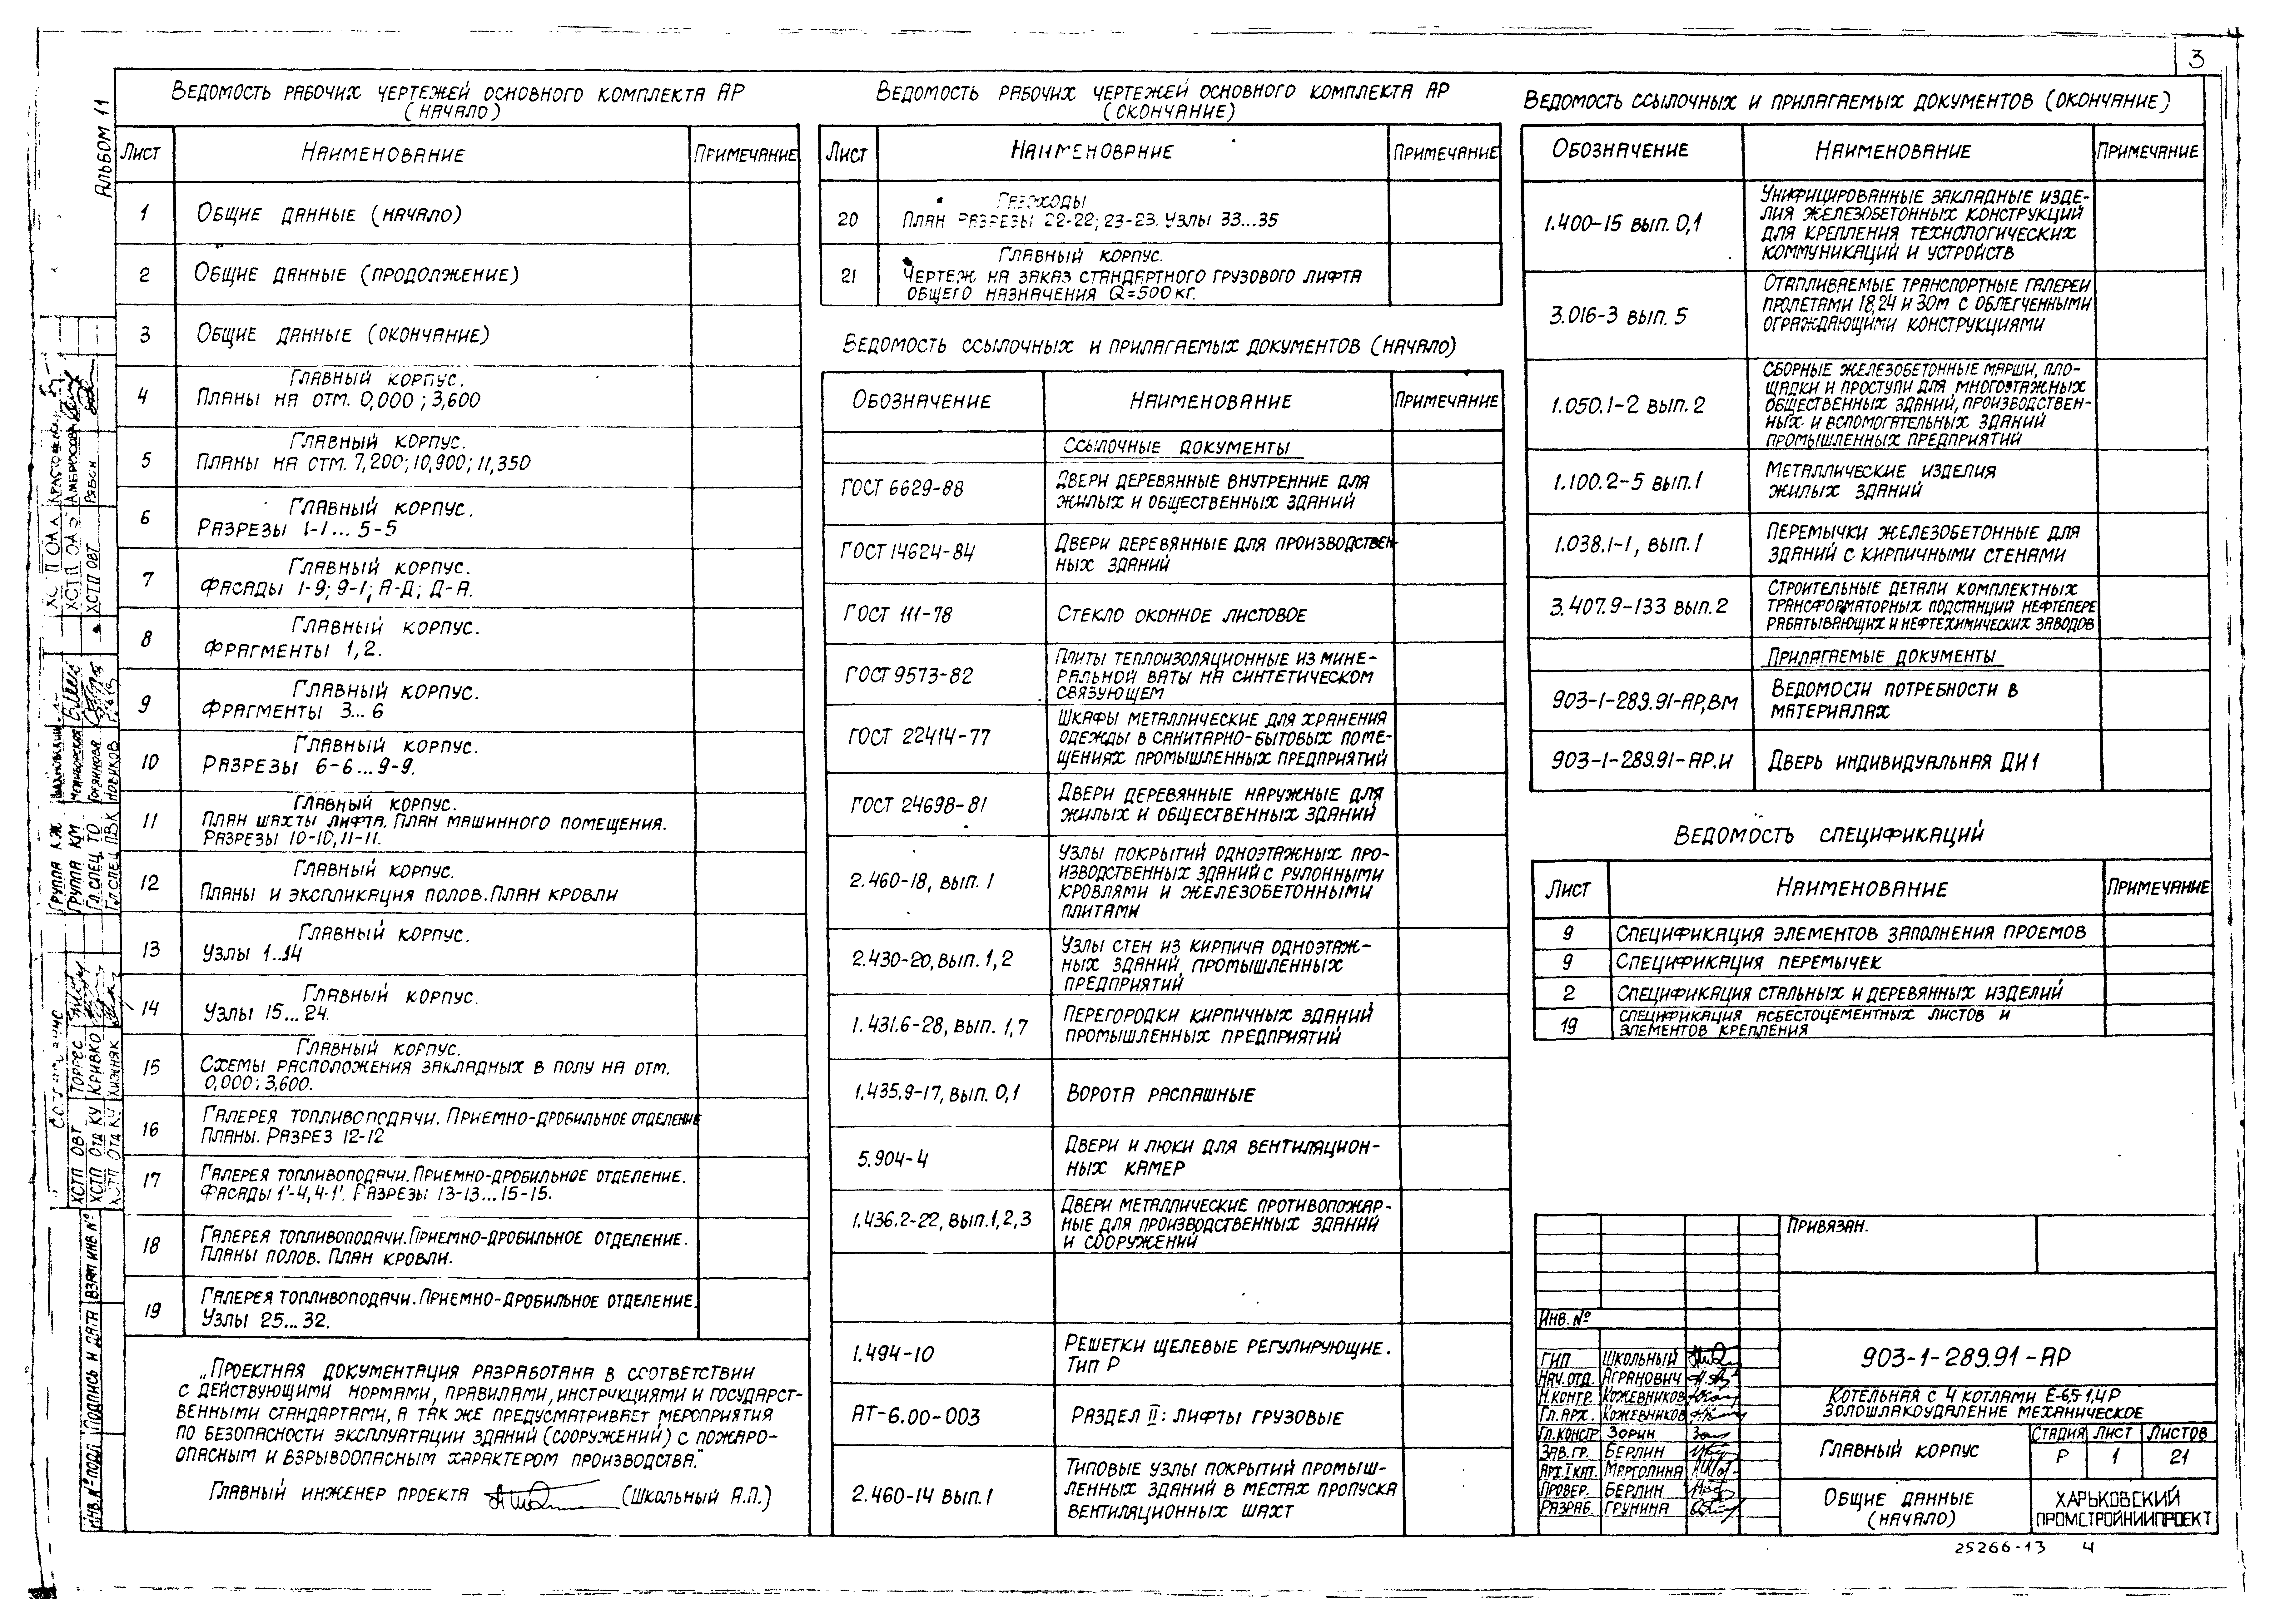 3
Альбом 11
Ведомость рабочих чертежей основного комплекта АР
(начало)
Лист Наименование Примечание
1 Общие данные (начало)
2 Общие данные (продолжение)
3 Общие данные (окончание)
Главный корпус.
4 Планы на отм. 0,000; 3,600
Главный корпус.
5 Планы на отм. 7,200; 10,900; 11,350
Главный корпус.
6 Разрезы 1-1... 5-5
Главный корпус.
7 Фасады 1-9; 9-1; А-Д; Д-А.
Главный корпус.
8 Фрагменты 1,2.
Главный корпус.
9 Фрагменты 3...6
Главный корпус.
10 Разрезы 6-6...9-9.
Главный корпус.
11 План шахты лифта. План машинного помещения.
Разрезы 10-10, 11-11.
Главный корпус.
12 Планы и экспликация полов. План кровли
Главный корпус.
13 Узлы 1..14
Главный корпус.
14 Узлы 15...24.
Главный корпус.
15 Схемы расположения закладных в полу на отм.
0,000; 3,600.
16 Галерея топливоподачи. Приемно-дробильное отделение
Планы. Разрез 12-12
17 Галерея топливоподачи. Приемно-дробильное отделение.
Фасады 1'-4, 4-1'. Разрезы 13-13...15-15.
18 Галерея топливоподачи. Приемно-дробильное отделение.
Планы полов. План кровли.
19 Галерея топливоподачи. Приемно-дробильное отделение.
Узлы 25...32.
„Проектная документация разработана в соответствии
с действующими нормами, правилами, инструкциями и государст-
венными стандартами, а так же предусматривает мероприятия
по безопасности эксплуатации зданий (сооружений) с пожаро-
опасным и взрывоопасным характером производства."
Главный инженер проекта (Школьный А.П.)
Ведомость рабочих чертежей основного комплекта АР
(окончание)
Лист Наименование Примечание
Газоходы
20 План Разрезы 22-22; 23-23. Узлы 33...35
Главный корпус.
21 Чертеж на заказ стандартного грузового лифта
общего назначения Q=500кг.
Ведомость ссылочных и прилагаемых документов (начало)
Обозначение Наименование Примечание
Ссылочные документы
ГОСТ 6629-88 Двери деревянные внутренние для
жилых и общественных зданий
ГОСТ 14624-84 Двери деревянные для производствен-
ных зданий
ГОСТ 111-78 Стекло оконное листовое
ГОСТ 9573-82 Плиты теплоизоляционные из мине-
ральной ваты на синтетическом
связующем
ГОСТ 22414-77 Шкафы металлические для хранения
одежды в санитарно-бытовых поме-
щениях промышленных предприятий
ГОСТ 24698-81 Двери деревянные наружные для
жилых и общественных зданий
2.460-18, вып. 1 Узлы покрытий одноэтажных про-
изводственных зданий с рулонными
кровлями и железобетонными
плитами
2.430-20, вып. 1, 2 Узлы стен из кирпича одноэтаж-
ных зданий промышленных
предприятий
1.431.6-28, вып. 1,7 Перегородки кирпичных зданий
промышленных предприятий
1.435.9-17, вып. 0,1 Ворота распашные
5.904-4 Двери и люки для вентиляцион-
ных камер
1.436.2-22, вып.1,2,3 Двери металлические противопожар-
ные для производственных зданий
и сооружений
1.494-10 Решетки щелевые регулирующие.
Тип Р
АТ-6.00-003 Раздел II: Лифты грузовые
2.460-14 вып.1 Типовые узлы покрытий промыш-
ленных зданий в местах пропуска
вентиляционных шахт
Ведомость ссылочных и прилагаемых документов (окончание)
Обозначение Наименование Примечание
1.400-15 вып. 0,1 Унифицированные закладные изде-
лия железобетонных конструкций
для крепления технологических
коммуникаций и устройств
3.016-3 вып. 5 Отапливаемые транспортные галереи
пролетами 18,24 и 30м с облегченными
ограждающими конструкциями
1.050.1-2 вып. 2 Сборные железобетонные марши, пло-
щадки и проступи для многоэтажных
общественных зданий, производствен-
ных и вспомогательных зданий
промышленных предприятий
1.100.2-5 вып.1 Металлические изделия
жилых зданий
1.038.1-1, вып.1 Перемычки железобетонные для
зданий с кирпичными стенами
3.407.9-133 вып.2 Строительные детали комплектных
трансформаторных подстанций нефтепере
рабатывающих и нефтехимических заводов
Прилагаемые документы
903-1-289.91-АР,ВМ Ведомости потребности в
материалах
903-1-289.91-АР.И Дверь индивидуальная ДИ1
Ведомость спецификаций
Лист Наименование Примечание
9 Спецификация элементов заполнения проемов
9 Спецификация перемычек
2 Спецификация стальных и деревянных изделий
19 Спецификация асбестоцементных листов и
элементов крепления
Привязан.
Инв. №
ГИП Школьный
Нач. отд. Агранович
Н.контр. Кожевников
Гл. арх. Кожевников
Гл. констр Зорин
Зав. гр. Берлин
Арх. I кат. Марголина
Провер. Берлин
Разраб. Грунина
903-1-289.91-АР
Котельная с 4 котлами Е-6,5-1,4Р
Золошлакоудаление механическое
Главный корпус
Стадия Лист Листов
Р 1 21
Общие данные
(начало)
Харьковский
Промстройниипроект
25266-13 4
Группа КЖ
Группа КМ
Гл. спец ТО Горяинова
Гл спец ПВК Новиков
ХСТП ОВТ Торрес
ХСТП Отд КУ Кривко
ХСТП ОВТ
Инв. № подл. Подпись и дата Взам инв №